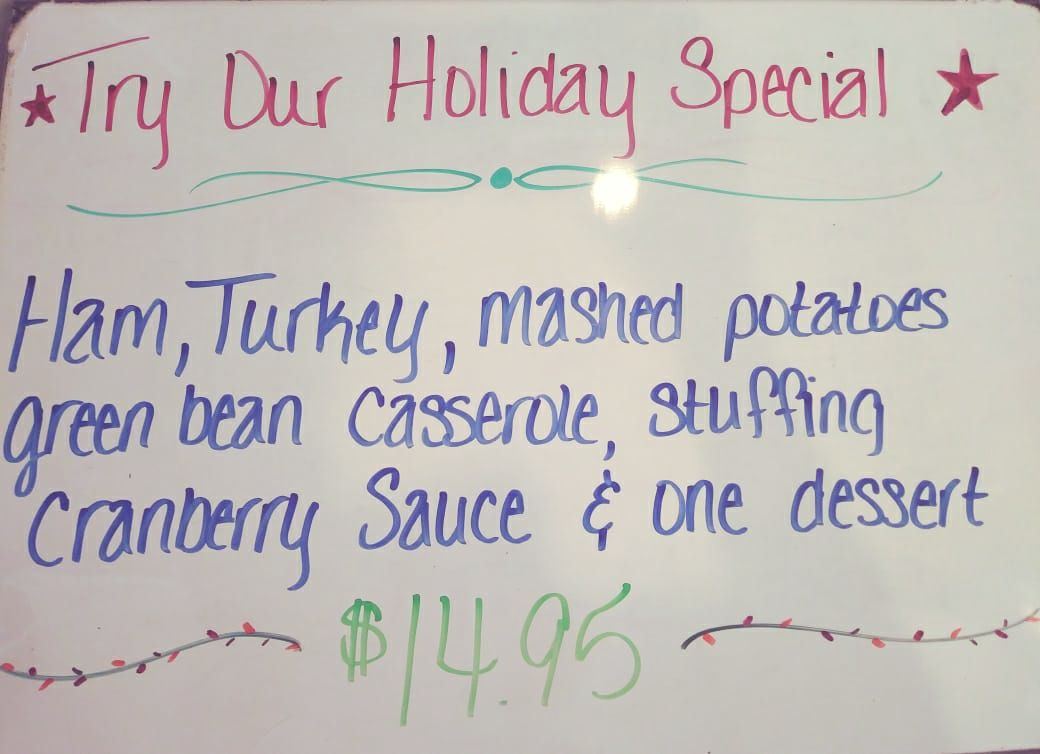 Try Our Holiday Special
Ham, Turkey, mashed potatoes
green bean casserole, stuffing
Cranberry Sauce & one dessert
$14.95